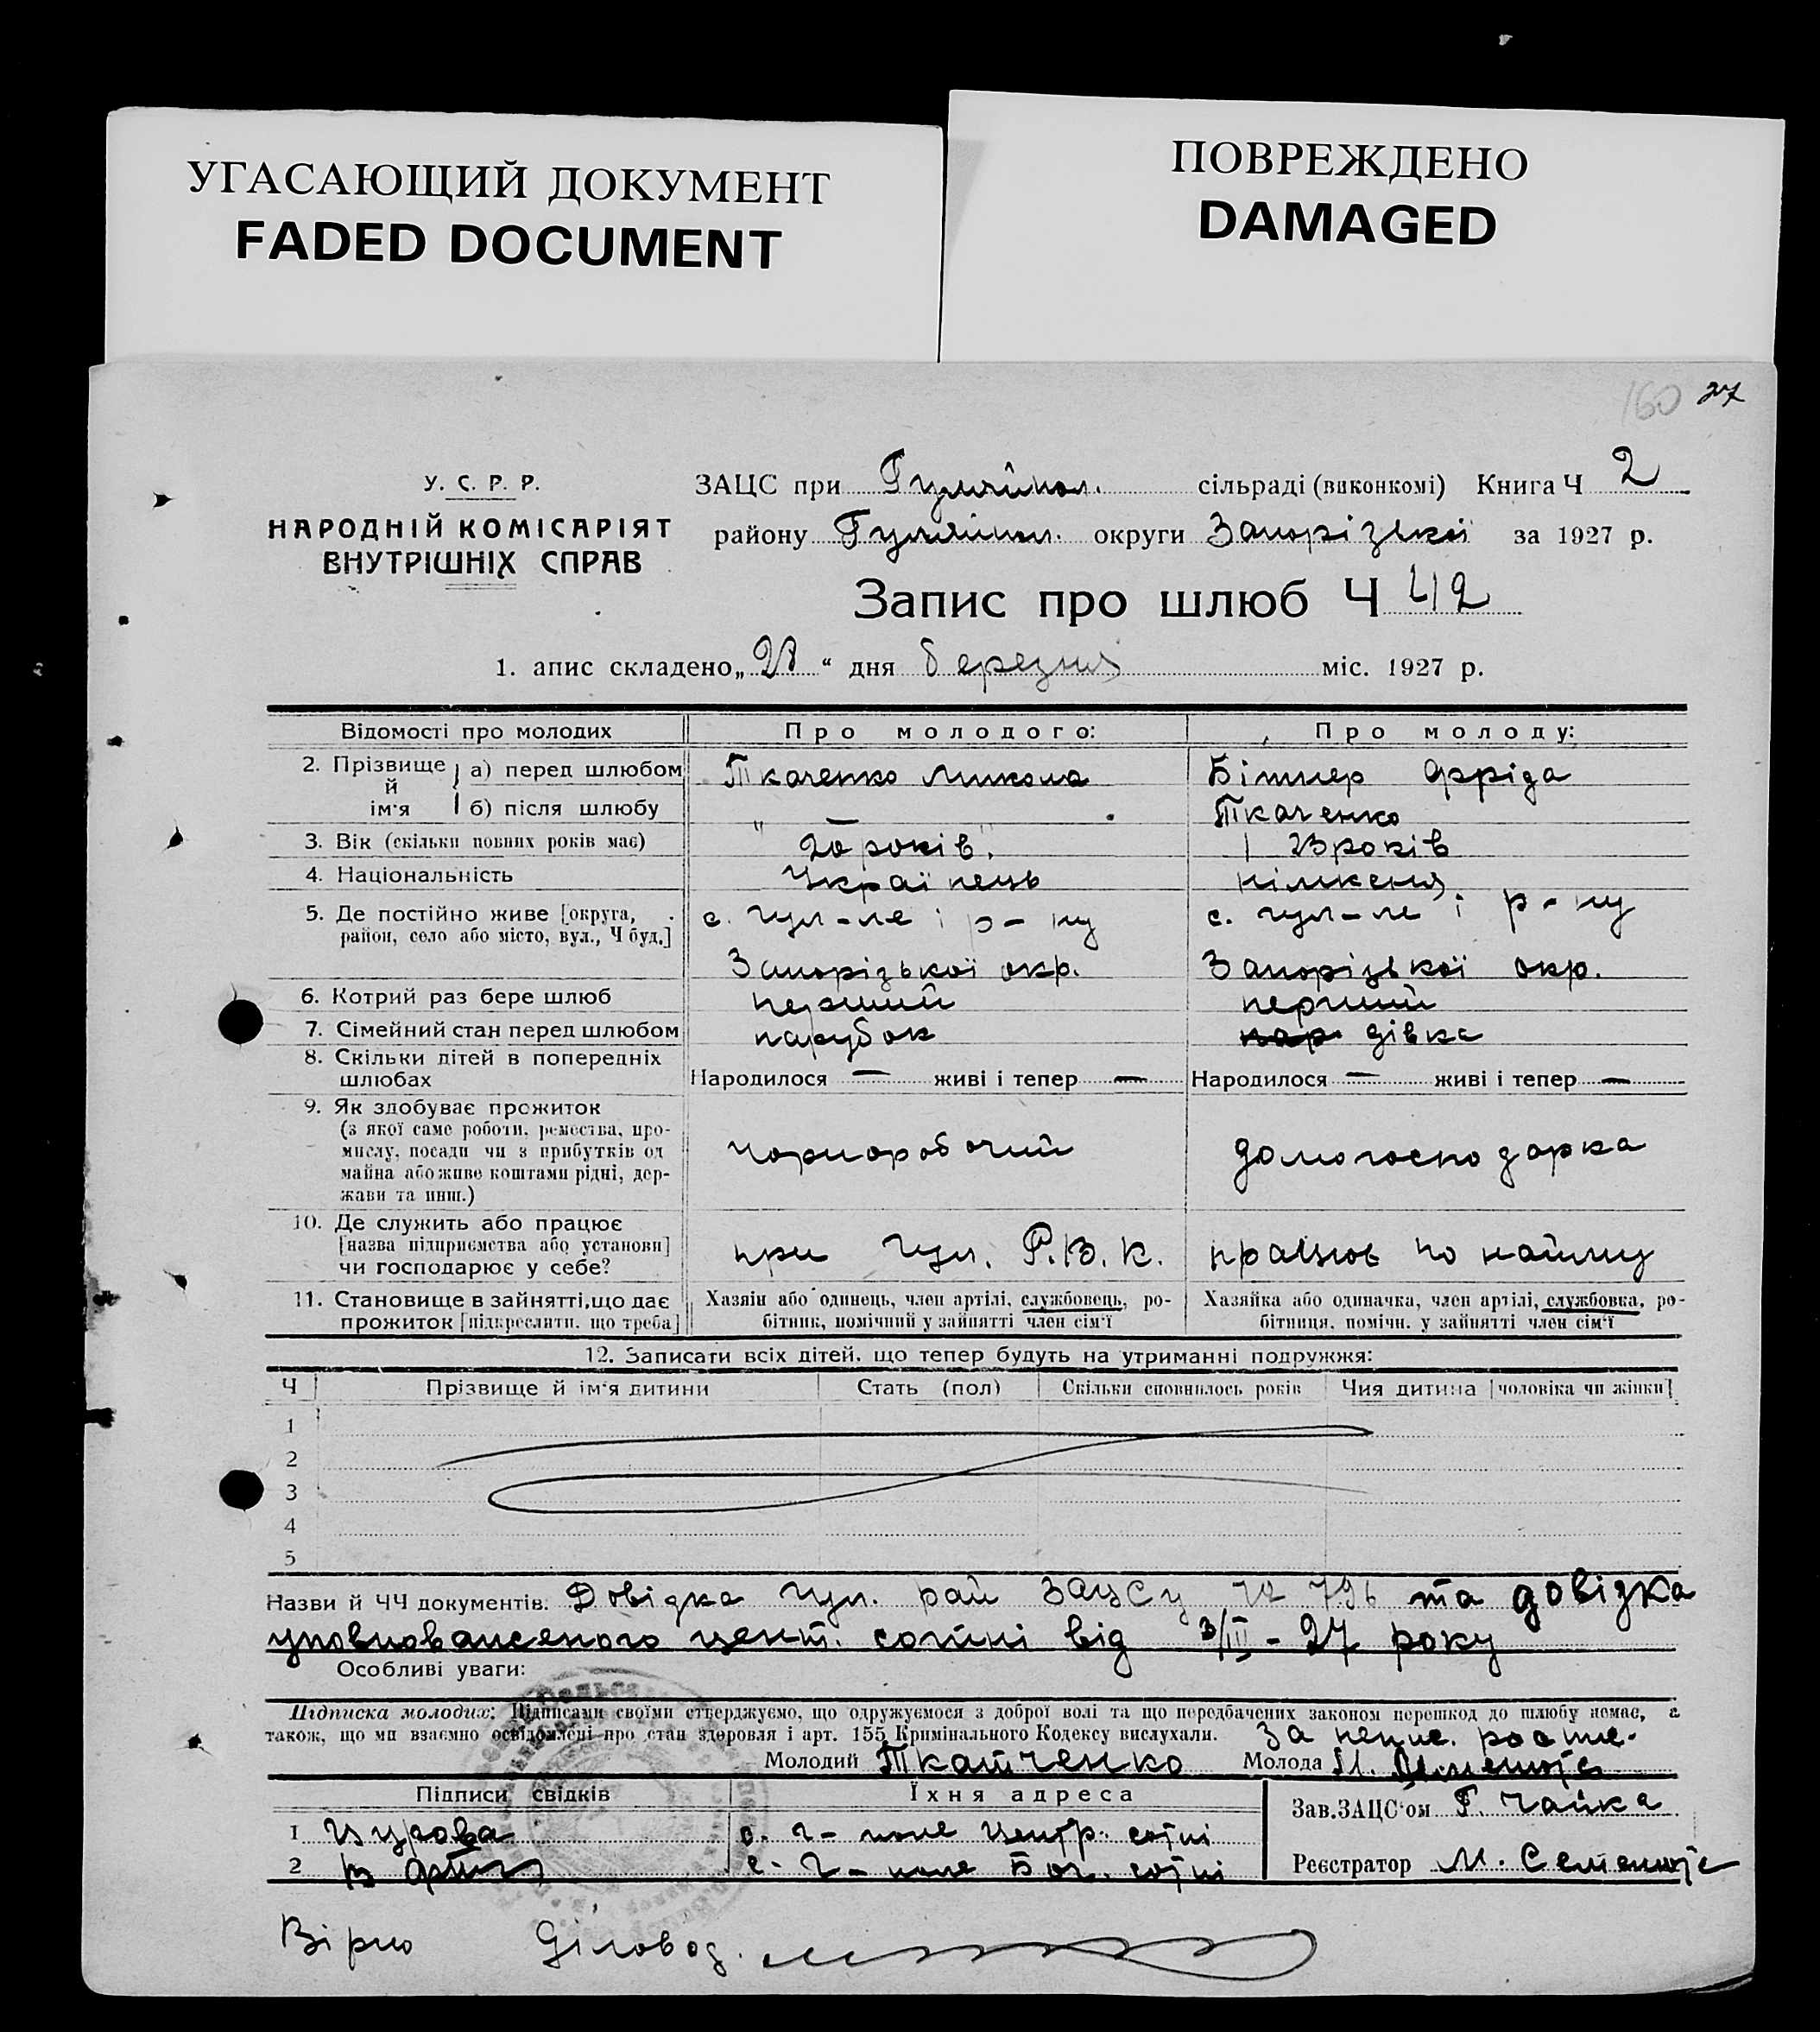 УГАСАЮЩИЙ ДОКУМЕНТ
FADED DOCUMENT
ПОВРЕЖДЕНО
DAMAGED
160 27
У. С. Р. Р.
НАРОДНІЙ КОМІСАРІЯТ
ВНУТРІШНІХ СПРАВ
ЗАЦС при Гуляйпол. сільраді (виконкомі) Книга Ч 2
району Гуляйпол. округи Запорізької за 1927 р.
Запис про шлюб Ч 42
1. апис складено „28“ дня березня міс. 1927 р.
Відомості про молодих Про молодого: Про молоду:
2. Прізвище й ім'я а) перед шлюбом Ткаченко Микола Бітнер Фріда
б) після шлюбу " — " Ткаченко
3. Вік (скільки повних років має) 20 років. 23 років
4. Національність Українець німкеня
5. Де постійно живе [округа, район, село або місто, вул., Ч буд.] с. Гул-ле і р-ну с. Гул-ле і р-ну
Запорізької окр. Запорізької окр.
6. Котрий раз бере шлюб перший перший
7. Сімейний стан перед шлюбом парубок дівка
8. Скільки дітей в попередніх шлюбах Народилося — живі і тепер — Народилося — живі і тепер —
9. Як здобуває прожиток
(з якої саме роботи, ремества, промислу, посади чи з прибутків од майна або живе коштами рідні, держави та инш.) Чорноробочий домогосподарка
10. Де служить або працює
[назва підприємства або установи]
чи господарює у себе? при Гул. Р.В.К. працює по найму
11. Становище в зайнятті, що дає прожиток [підкреслити. що треба] Хазяїн або одинець, член артілі, службовець, робітник, помічний у зайнятті член сім'ї Хазяйка або одиначка, член артілі, службовка, робітниця, помічн. у зайнятті член сім'ї
12. Записати всіх дітей, що тепер будуть на утриманні подружжя:
Ч Прізвище й ім'я дитини Стать (пол) Скільки сповнилось років Чия дитина [чоловіка чи жінки]
1
2
3
4
5
Назви й ЧЧ документів: Довідка Гул. рай ЗАЦСу № 796 та довідка
уповноваженого цент. сотні від 3/III-27 року
Особливі уваги:
Підписка молодих: Підписами своїми стверджуємо, що одружуємося з доброї волі та що передбачених законом перешкод до шлюбу немає, а
також, що ми взаємно освідомлені про стан здоровля і арт. 155 Кримінального Кодексу вислухали. За непис. роспис.
Молодий Ткатченко Молода
Підписи свідків Їхня адреса Зав. ЗАЦС'ом Г. Чайка
1 Цурова с. Г-поле Центр. сотні
2 с. Г-поле Боч. сотні Реєстратор М. Семенюта
Вірно Діловод.